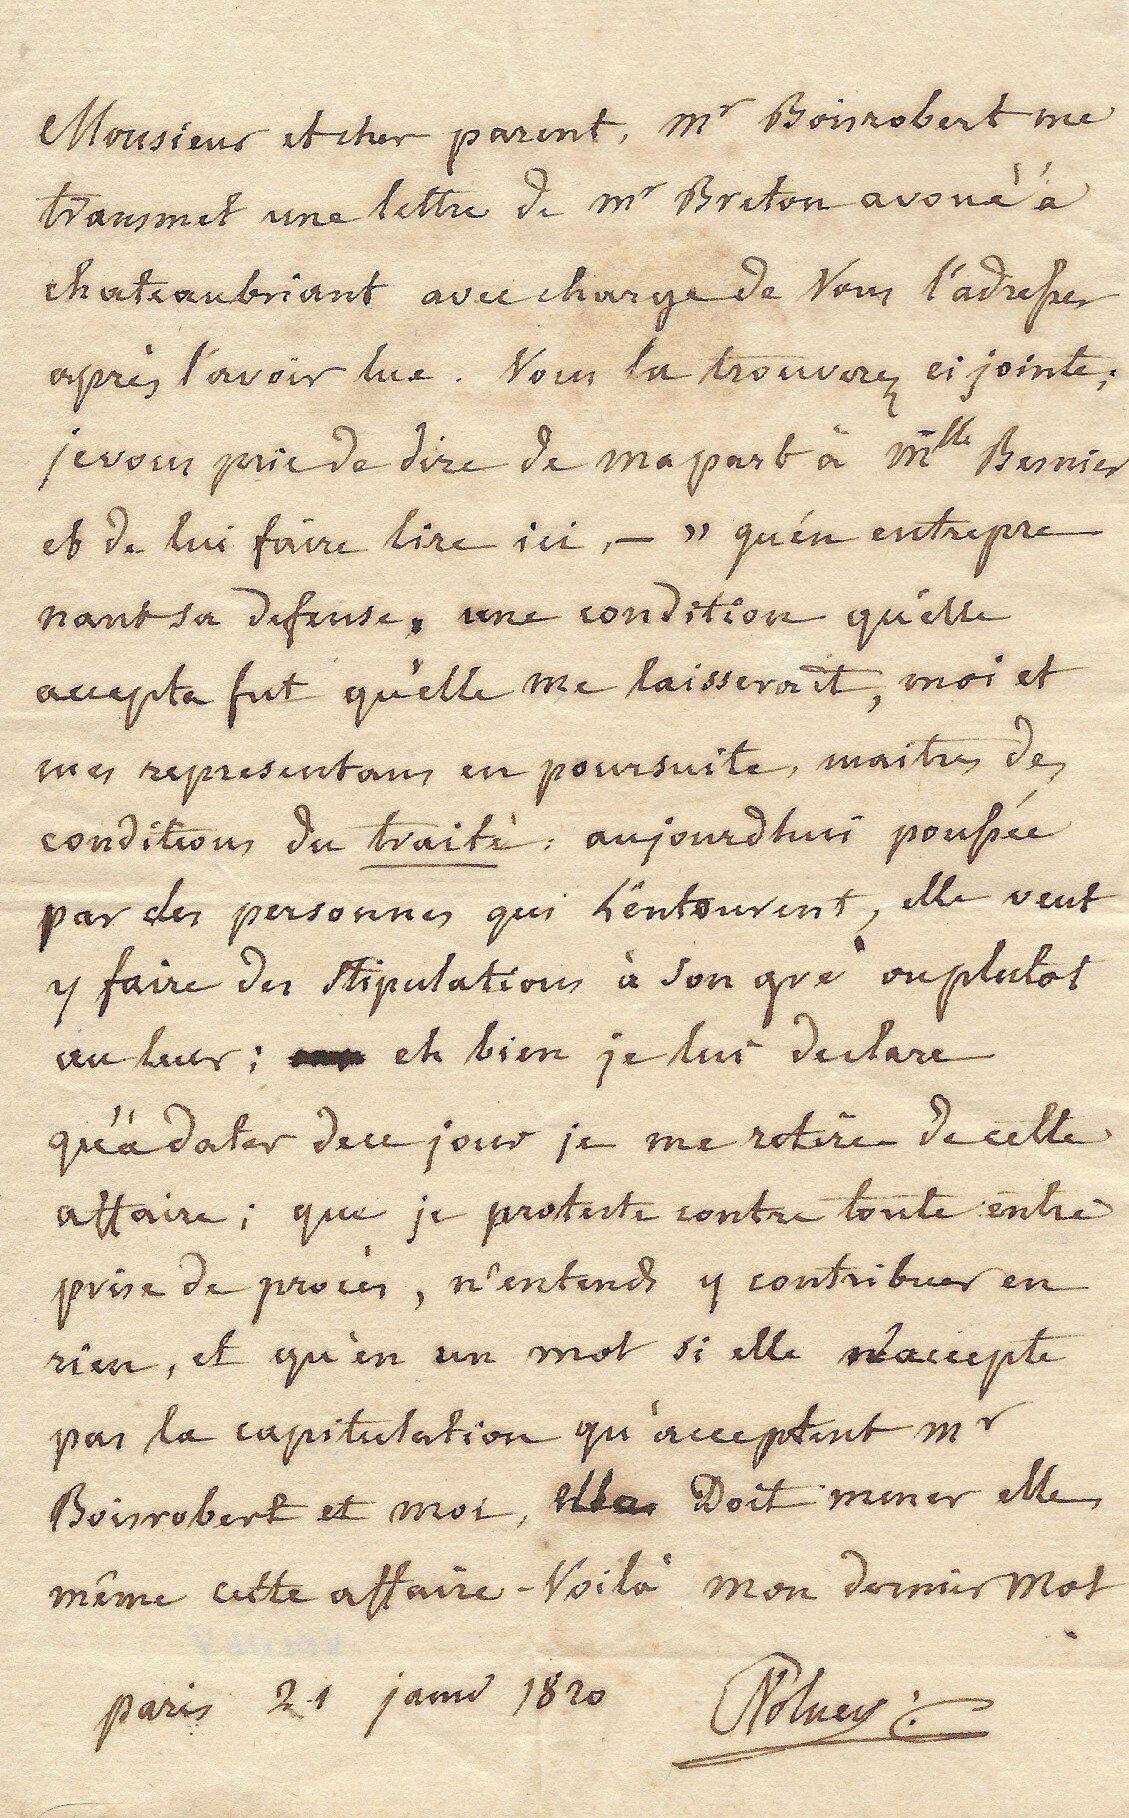 Monsieur et cher parent, mr Boisrobert me
transmet une lettre de mr Breton avoué à
chateaubriant avec charge de Vous l'adresser
après l'avoir lue. Vous la trouverez ci jointe;
je vous prie de dire de ma part à mlle Bernier
et de lui faire lire ici, — " qu'en entrepre
nant sa defense, une condition qu'elle
accepta fut qu'elle me laisserait, moi et
mes representans en poursuite, maitres des
conditions du traité: aujourdhui poussée
par des personnes qui l'entourent, elle veut
y faire des stipulations à son gré ou plutot
au leur; eh bien je lui declare
qu'à dater de ce jour je me retire de cette
affaire; que je proteste contre toute entre
prise de procès, n'entends y contribuer en
rien, et qu'en un mot si elle n'accepte
pas la capitulation qu'acceptent mr
Boisrobert et moi, Doit mener elle
même cette affaire - Voilà mon dernier mot
paris 21 janvr 1820 Volney